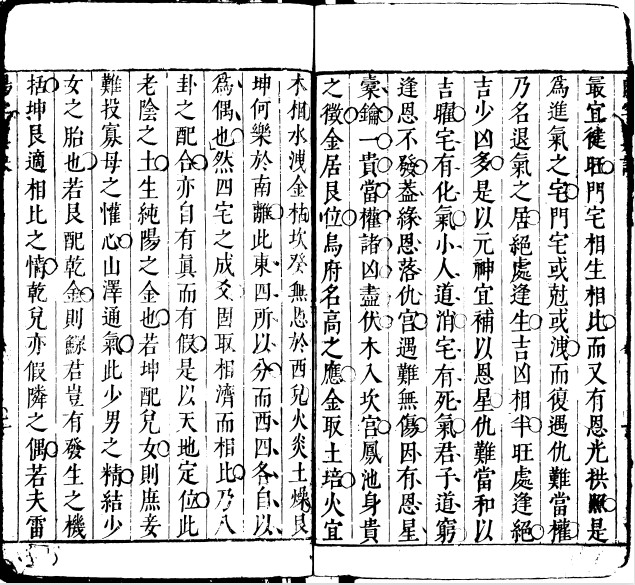 最宜健旺門宅相生相比而又有恩光拱照是
為進氣之宅門宅或尅或洩而復遇仇難當權
乃名退氣之居絕處逢生吉凶相半旺處逢絕
吉少凶多是以元神宜補以恩星仇難當和以
吉曜宅有化氣小人道消宅有死氣君子道窮
逢恩不發葢緣恩落仇宮遇難無傷因有恩星
槖鑰一貴當權諸凶盡伏木入坎宮鳳池身貴
之徵金居艮位烏府名高之應金取土培火宜
木相水洩金枯坎癸無恩於西兌火炎土燥艮
坤何樂於南離此東四所以分而西四各自以
為偶也然四宅之成爻固取相濟而相比乃八
卦之配合亦自有眞而有假是以天地定位此
老陰之土生純陽之金也若坤配兌女則庶妾
難投寡母之懽心山澤通氣此少男之精結少
女之胎也若艮配乾金則鰥君豈有發生之機
括坤艮適相比之情乾兌亦假隣之偶若夫雷